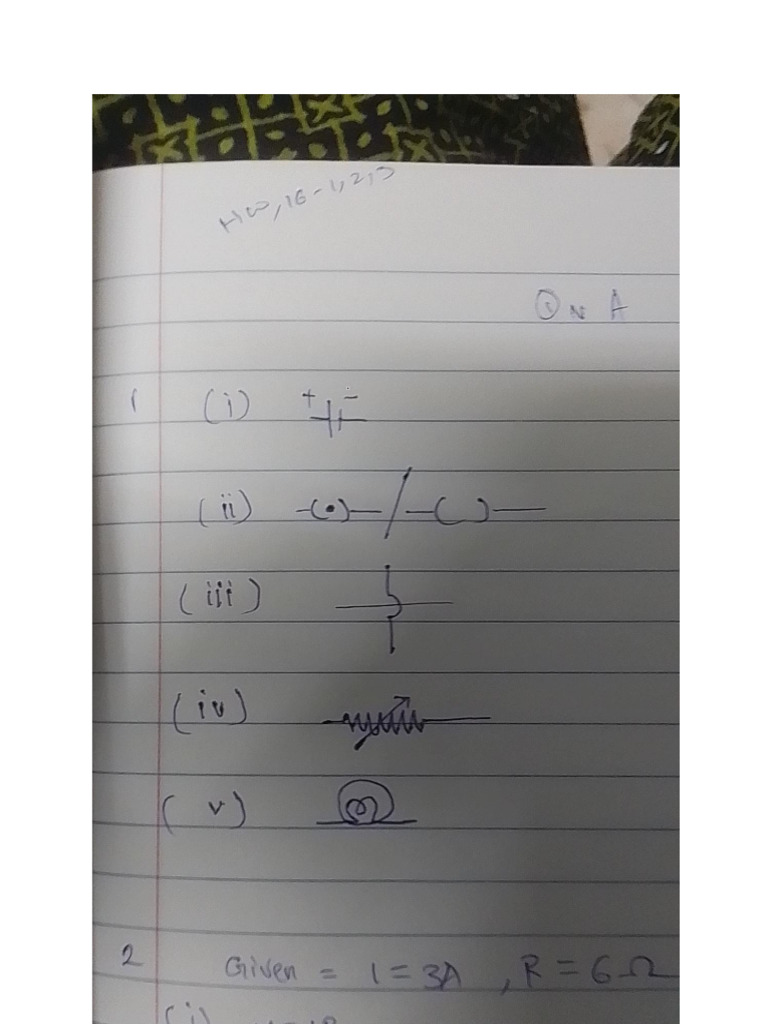 HW, 16-1,2,3
Q N A
1 (i) + -
(ii)
(iii)
(iv)
(v)
2 Given = I = 3A , R = 6 Ω
(i)